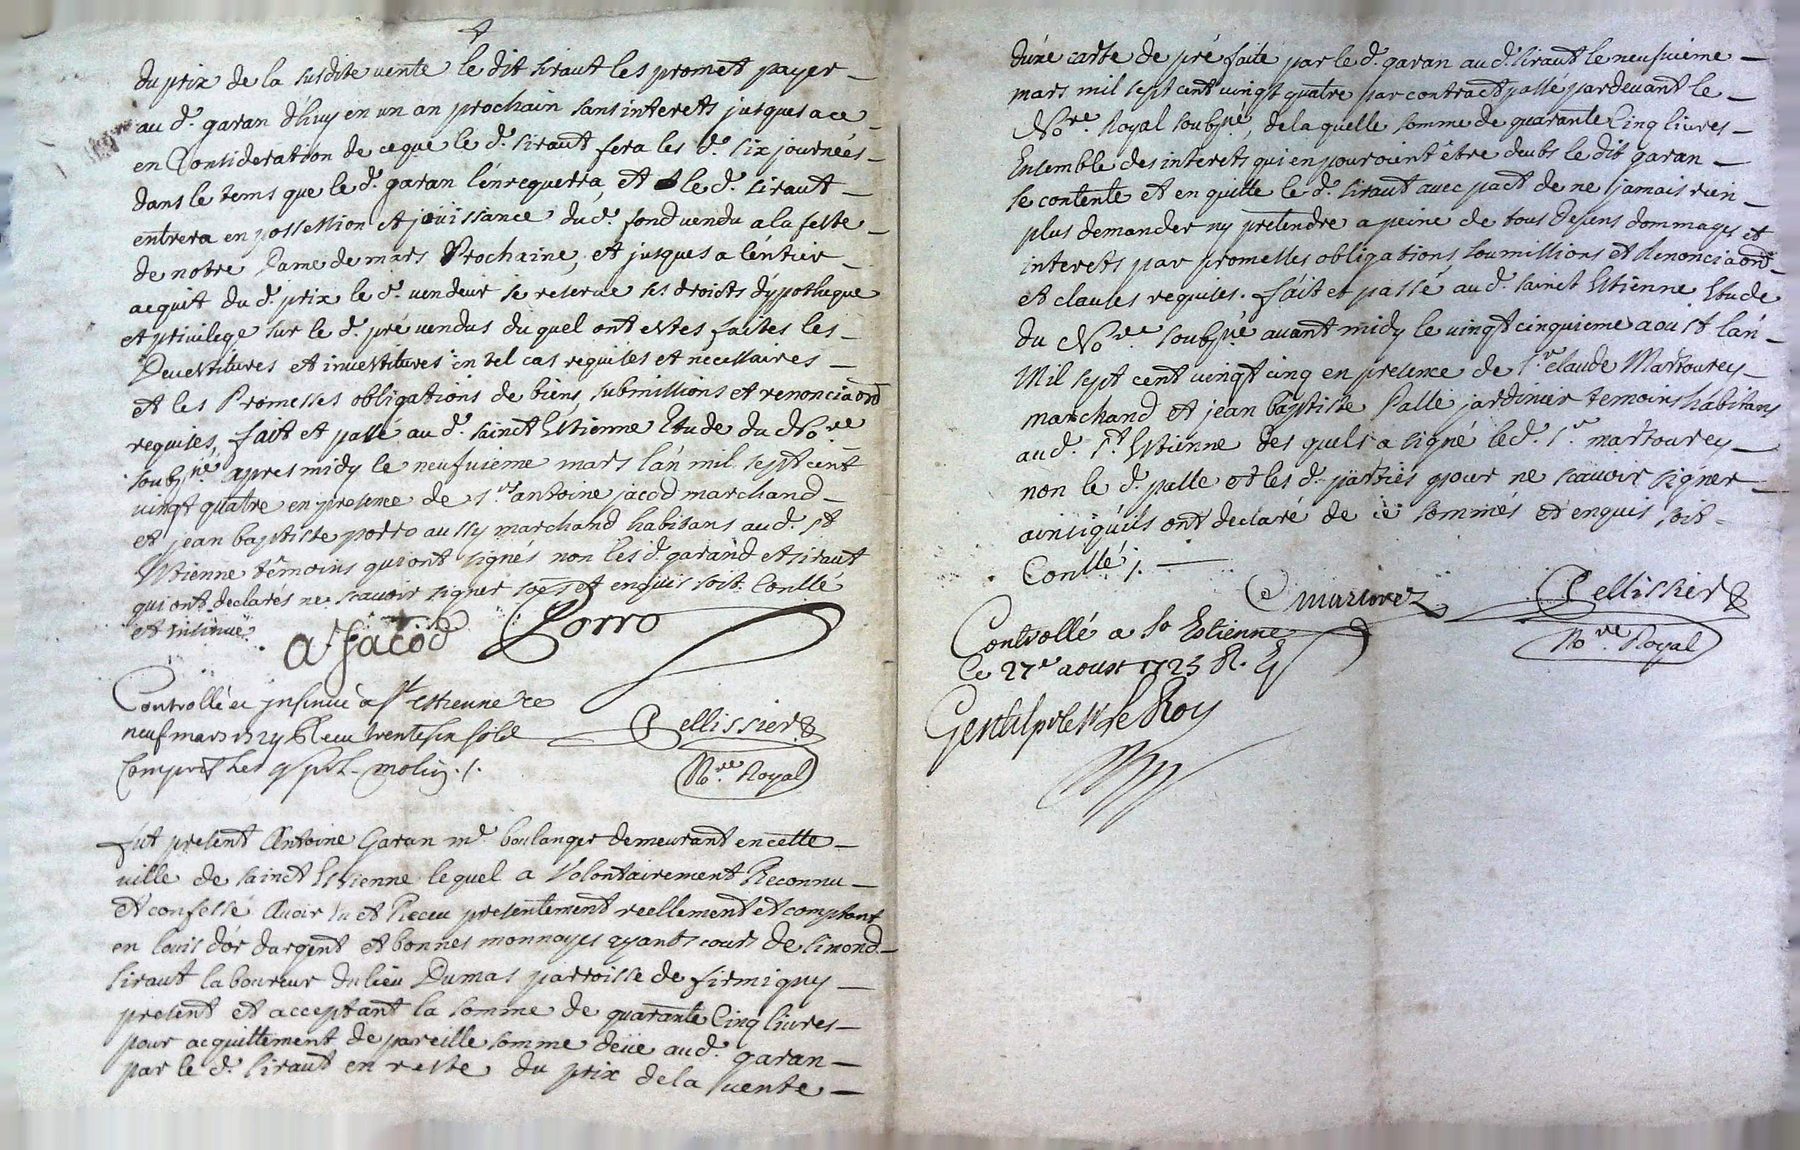 du prix de la susdite vente le dit siraut les promet payer
au d. garan d'huy en un an prochain sans interets jusques a ce
en Consideration de ce que le d. siraut fera les d. six journeés
dans le tems que le d. garan l'énrequerra, et le d. siraut
entrera en possession et joüissance du d. fond vendu a la feste
de notre Dame de mars Prochaine, et jusques a léntier
acquit du d. prix le d. vendeur se reserve ses droicts d'ypotheque
et privilege sur le d. pré vendus du quel ont estes faites les
Devestitures et investitures en tel cas requises et necessaires
et les Promesses obligations de biens, submissions et renonciaons
requises, fait et passé au d. sainct Estienne Etude du No.re
soubz.né apres midy le neufuieme mars l'an mil sept cent
vingt quatre en presence de s.rs antoine jacod marchand
et jean baptiste porro aussy marchand habitans au d. st
Estienne témoins qui ont signés non les d. garand et siraut
qui ont declarés ne scavoir signer et enquis soit Conllé
et insinué
A Jacod Porro
Controllé et insinué a st estienne ce
neuf mars 1724 Receu trente six sols
Compris les molin
Pellissier
No.re Royal
fut present Antoine Garan m.d boulanger demeurant en cette
ville de sainct Estienne lequel a Volontairement Reconnu
et confessé Avoir eu et Receu presentement reellement et comptant
en louis d'or d'argent et bonnes monnoyes ayants cours de simond
siraut laboureur du lieu Dumas parroisse de firmigny
present et acceptant la somme de quarante Cinq livres
pour acquittement de pareille somme deüe au d. garan
par le d. siraut en reste du prix de la vente
d'une carte de pré faite par le d. garan au d. siraut le neufuiéme
mars mil sept cent vingt quatre par contract passé pardevant le
No.re Royal soubz.né, de la quelle somme de quarante Cinq livres
Ensemble des interets qui en pouroint être deubs le dit garan
se contente et en quitte le d. siraut avec pact de ne jamais rien
plus demander ny pretendre a peine de tous Depens dommages et
interets par promesses obligations, soumissions et Renonciaons
et clauses requises. fait et passé au d. sainct Estienne Etude
du No.re soubz.né avant midy le vingt cinquieme aoust lán
Mil sept cent vingt cinq en presence de s.r claude Martourey
marchand et jean baptiste Palle jardinier temoins habitans
au d. st. Estienne des quels a signé le d. s.r martourey
non le d. palle et les d. parties pour ne scavoir signer
ainsi qu'ils ont declaré de ce sommés et enquis soit
Conllé ;.
C martorey
Pellissier
No.re Royal
Controllé a st Estienne
Le 27.e aoust 1725 R.
Le Roy